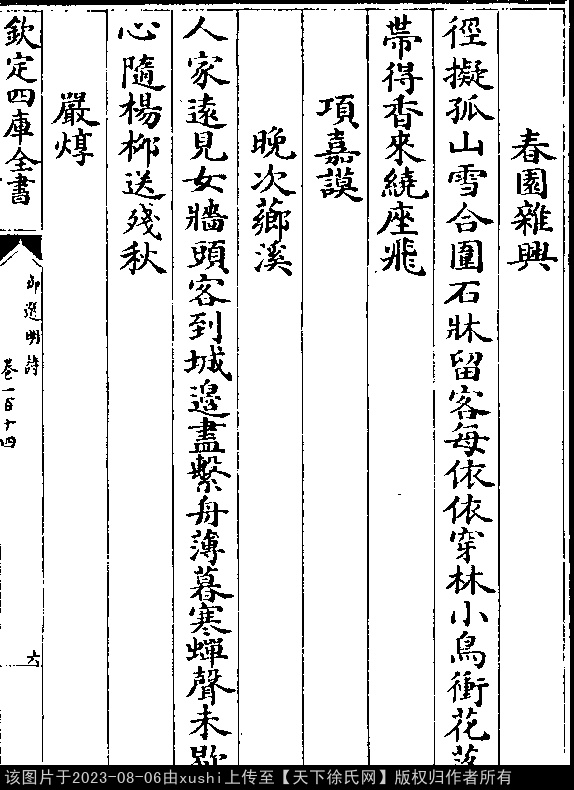 春園雜興
徑擬孤山雪合圍石牀留客每依依穿林小鳥衝花落
帶得香來繞座飛
項嘉謨
晚次薌溪
人家遠見女牆頭客到城邊盡繫舟薄暮寒蟬聲未歇
心隨楊柳送殘秋
嚴焞
欽定四庫全書
御選明詩
卷一百十四
六
该图片于2023-08-06由xushi上传至【天下徐氏网】版权归作者所有